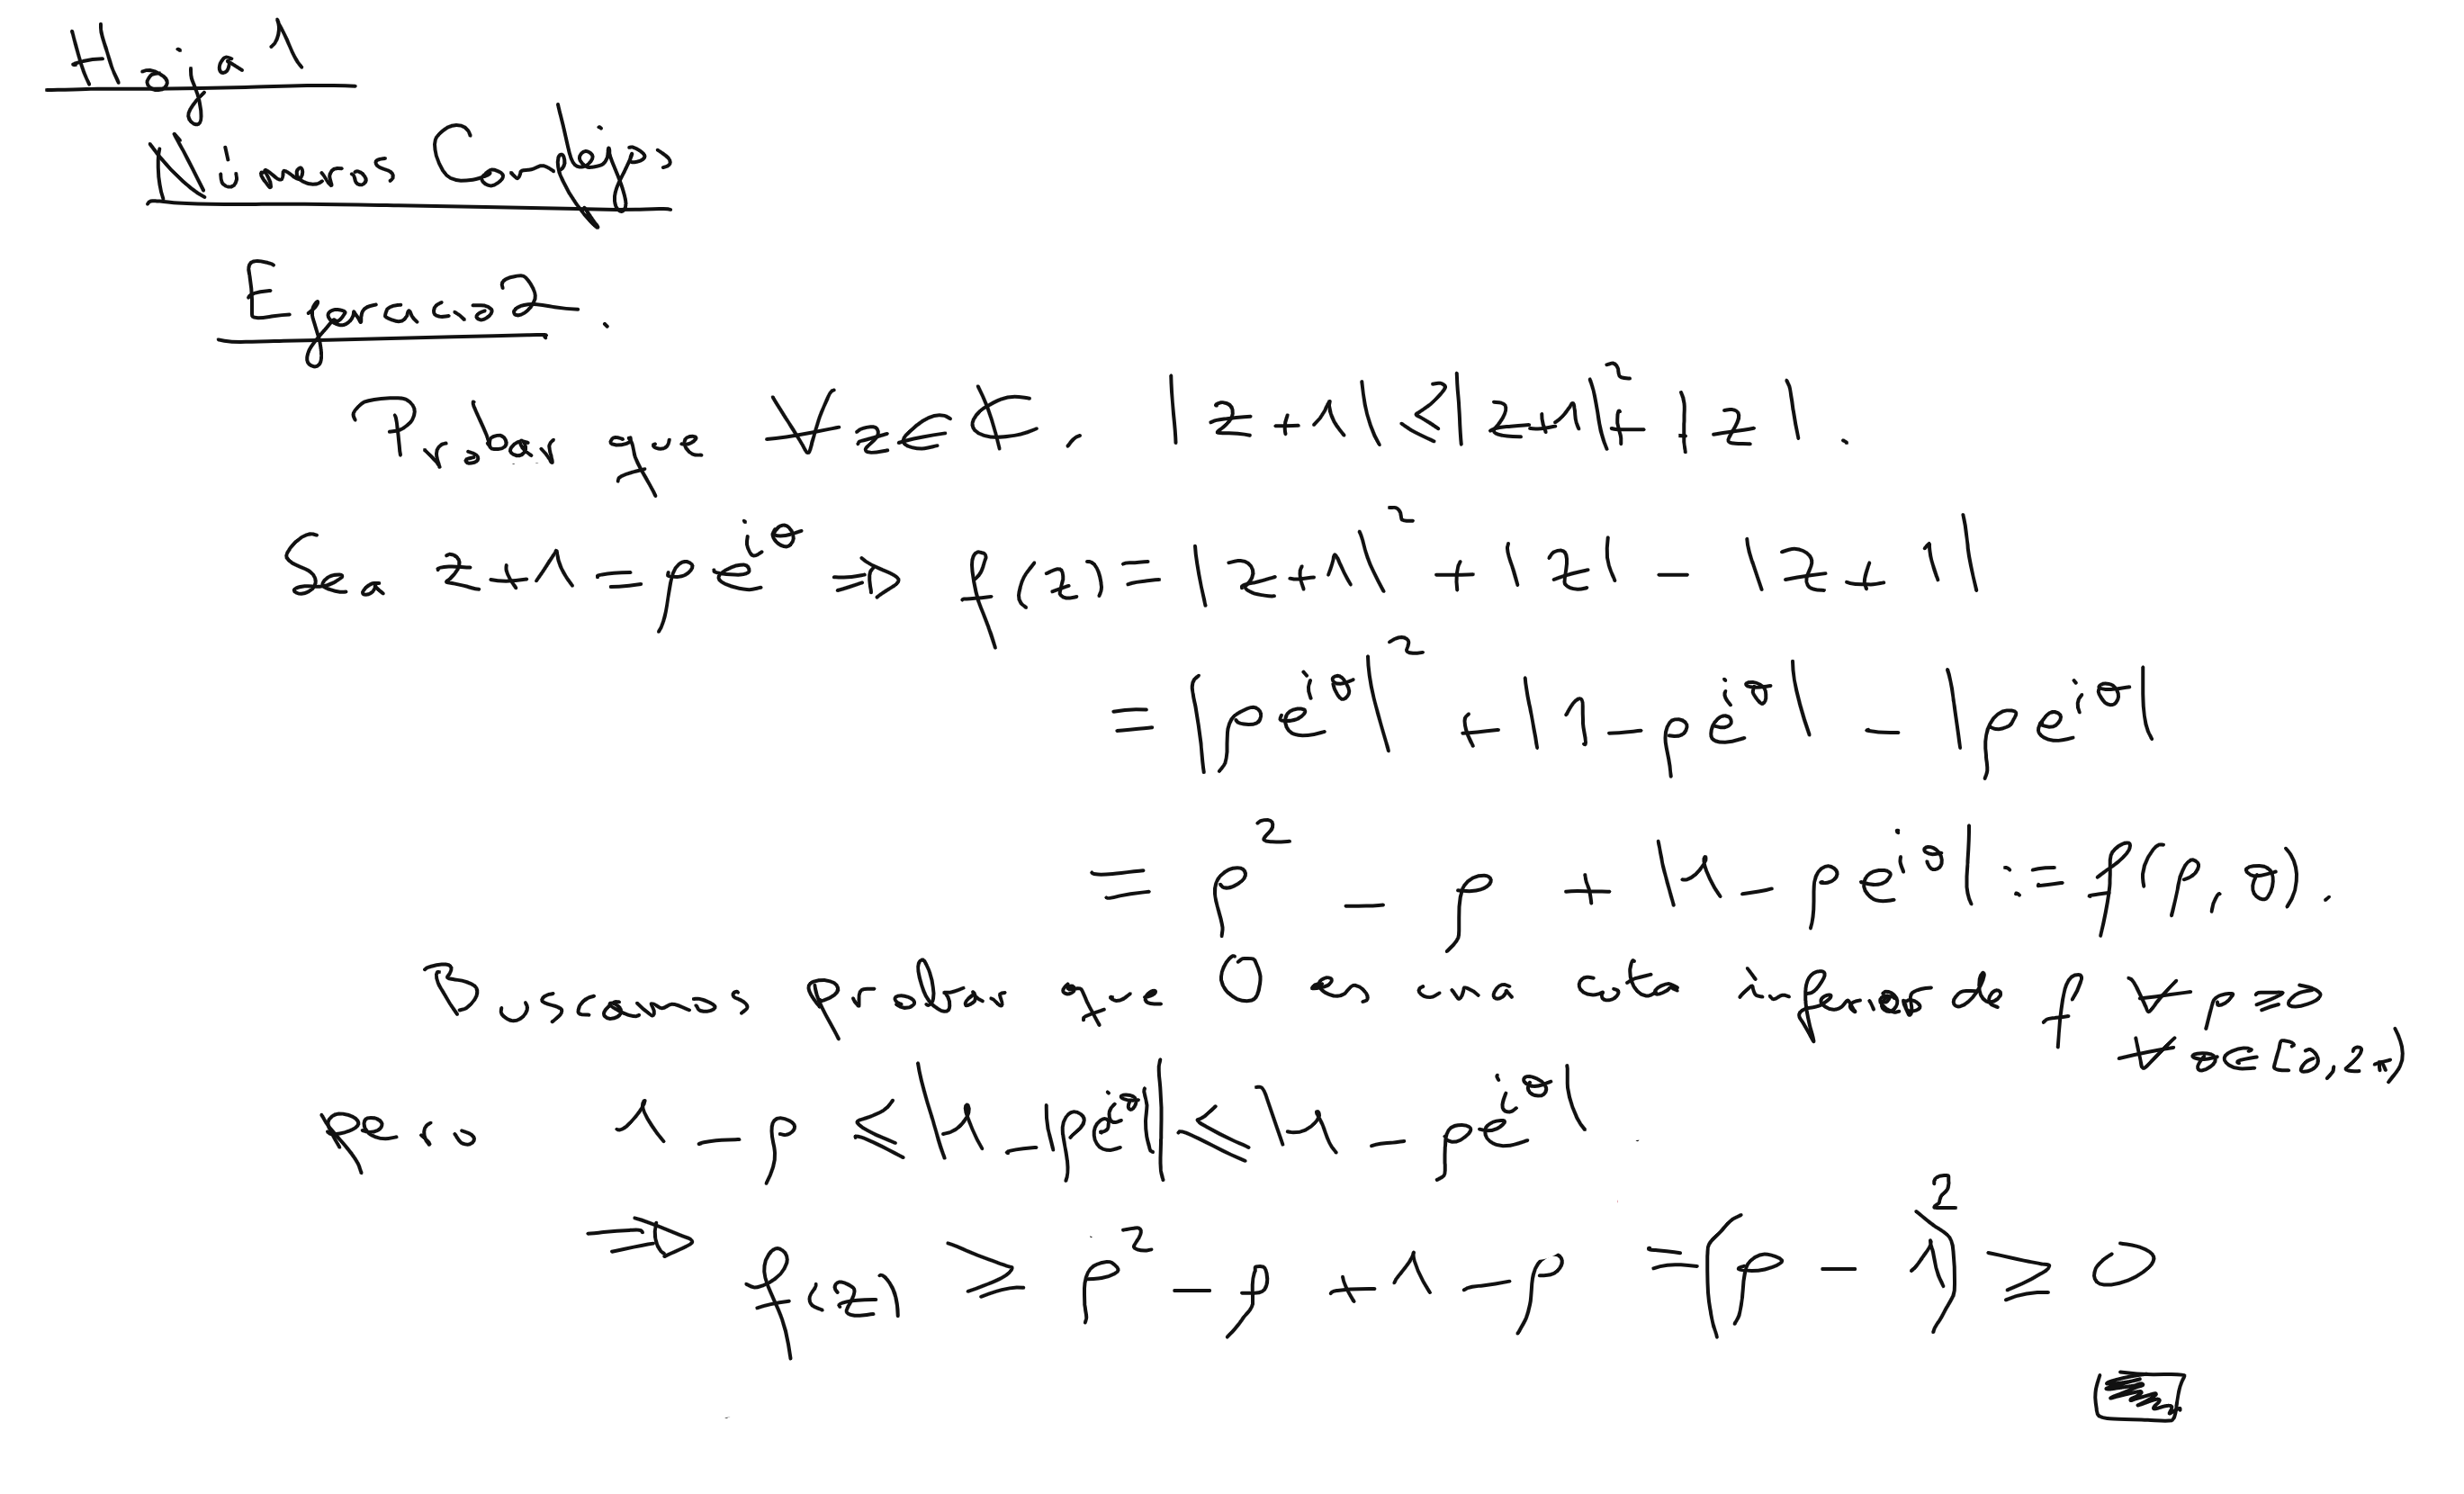 Hoja 1
Números Complejos
Ejercicio 2.
Probar que ∀z∈ℂ, |z+1| ≤ |z+1|² + |z|.
Sea z+1 = ρe^{iθ} ⇒ f(z) = |z+1|² + |z| - |z+1|
= |ρe^{iθ}|² + |1-ρe^{iθ}| - |ρe^{iθ}|
= ρ² - ρ + |1-ρe^{iθ}| := f(ρ,θ).
Buscamos probar que 0 es una cota inferior de f ∀ρ≥0
∀θ∈[0,2π)
pero 1-ρ ≤ |1-|ρe^{iθ}|| ≤ |1-ρe^{iθ}|
⇒ f(z) ≥ ρ² - ρ + 1 - ρ = (ρ - 1)² ≥ 0